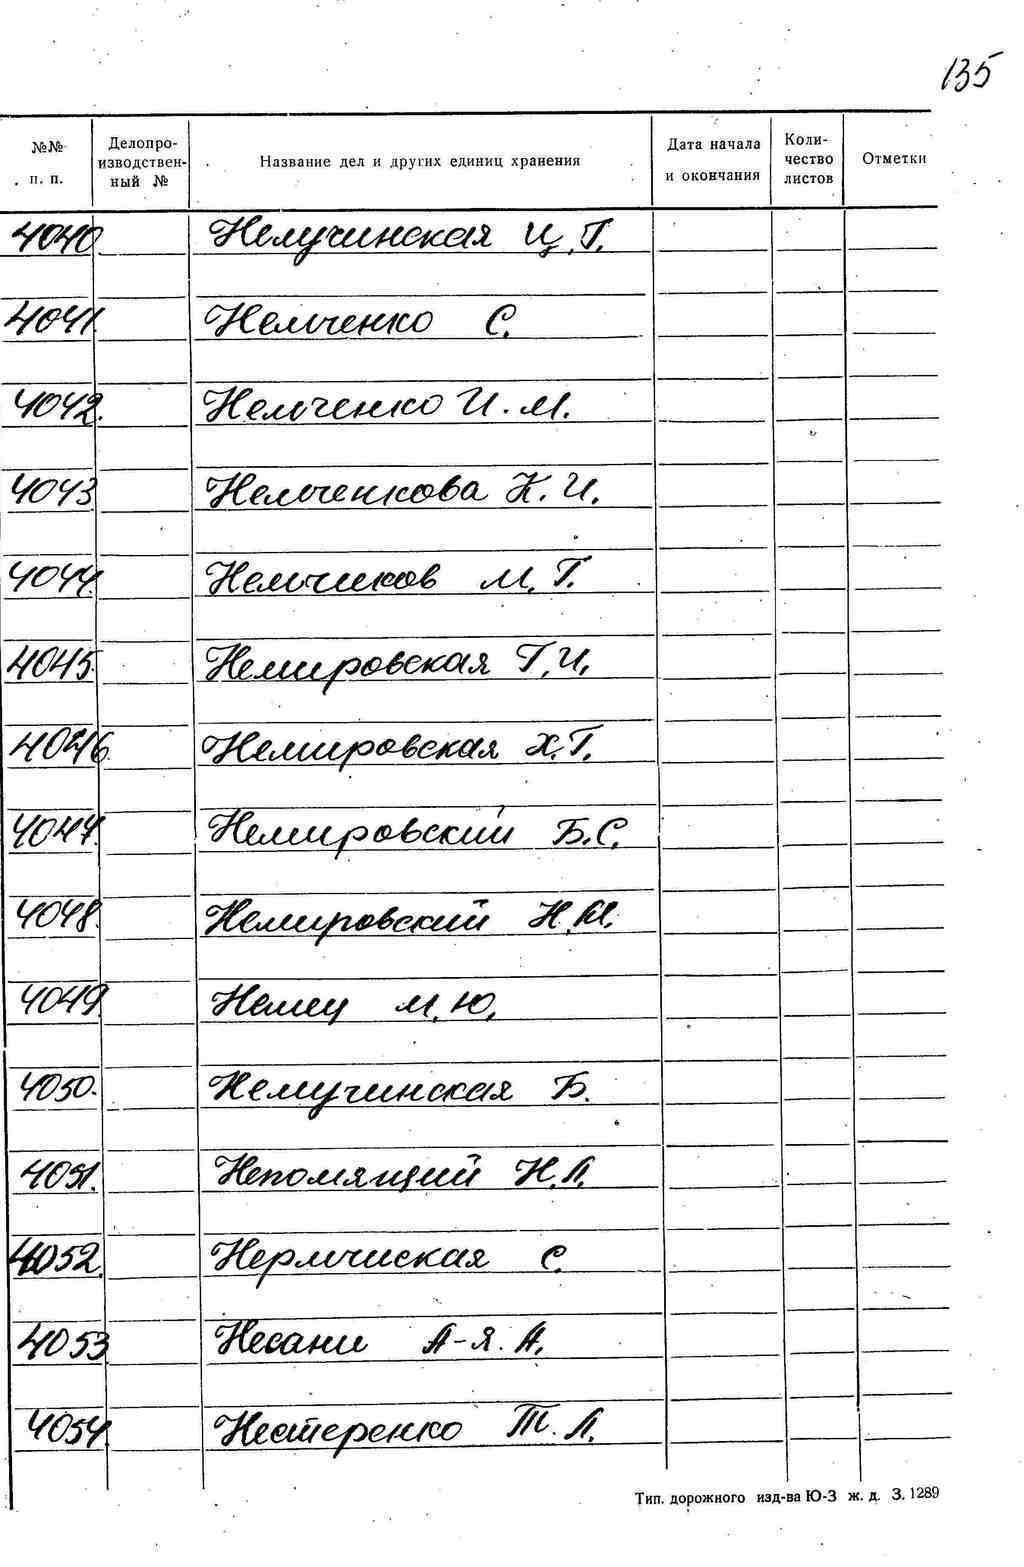 135
№№ п. п. Делопро-изводствен-ный № Название дел и других единиц хранения Дата начала и окончания Коли-чество листов Отметки
4040 Немучинская Ц. Г.
4041. Немченко С.
4042. Немченко И. М.
4043. Немченкова К. И.
4044. Немчиков М. Г.
4045. Немировская Г. И.
4046. Немировская Х. Г.
4047. Немировский Б. С.
4048. Немировский Н. М.
4049. Немец М. Ю.
4050. Немучинская Б.
4051. Непомящий Н. Л.
4052. Нермчиская С.
4053 Несани А-Я. А.
4054. Нестеренко Т. Л.
Тип. дорожного изд-ва Ю-З ж. д. З. 1289